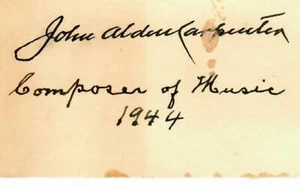 John Alden Carpenter
Composer of Music
1944